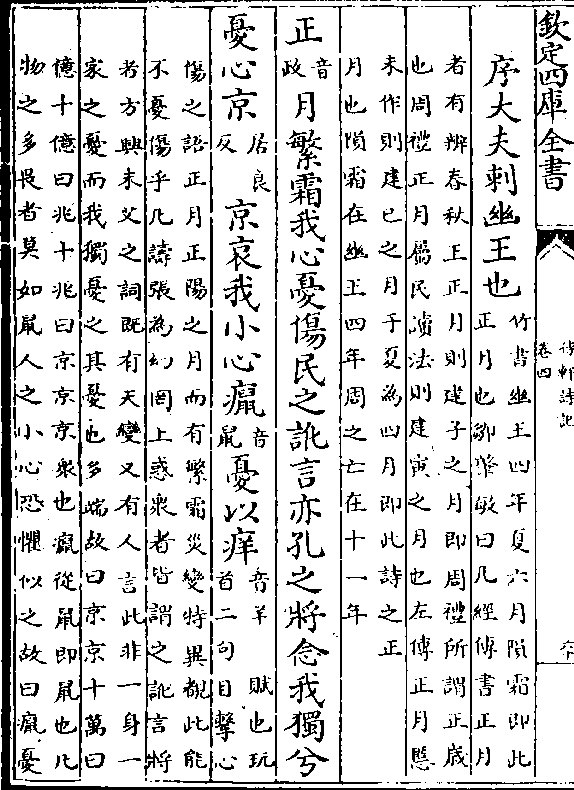 欽定四庫全書
待軒詩記
卷四
序大夫刺幽王也
竹書幽王四年夏六月隕霜即此
正月也鄒肇敏曰凡經傳書正月
者有辨春秋王正月則建子之月即周禮所謂正歲
也周禮正月屬民讀法則建寅之月也左傳正月慝
未作則建巳之月于夏為四月即此詩之正
月也隕霜在幽王四年周之亡在十一年
正音政月繁霜我心憂傷民之訛言亦孔之將念我獨兮
憂心京居良反京哀我小心癙音鼠憂以痒
音羊 賦也玩
首二句目擊心
傷之語正月正陽之月而有繁霜災變特異覩此能
不憂傷乎凡譸張為幻罔上惑衆者皆謂之訛言將
者方興未艾之詞既有天變又有人言此非一身一
家之憂而我獨憂之其憂也多端故曰京京十萬曰
億十億曰兆十兆曰京京京衆也癙從鼠即鼠也凡
物之多畏者莫如鼠人之小心恐懼似之故曰癙憂